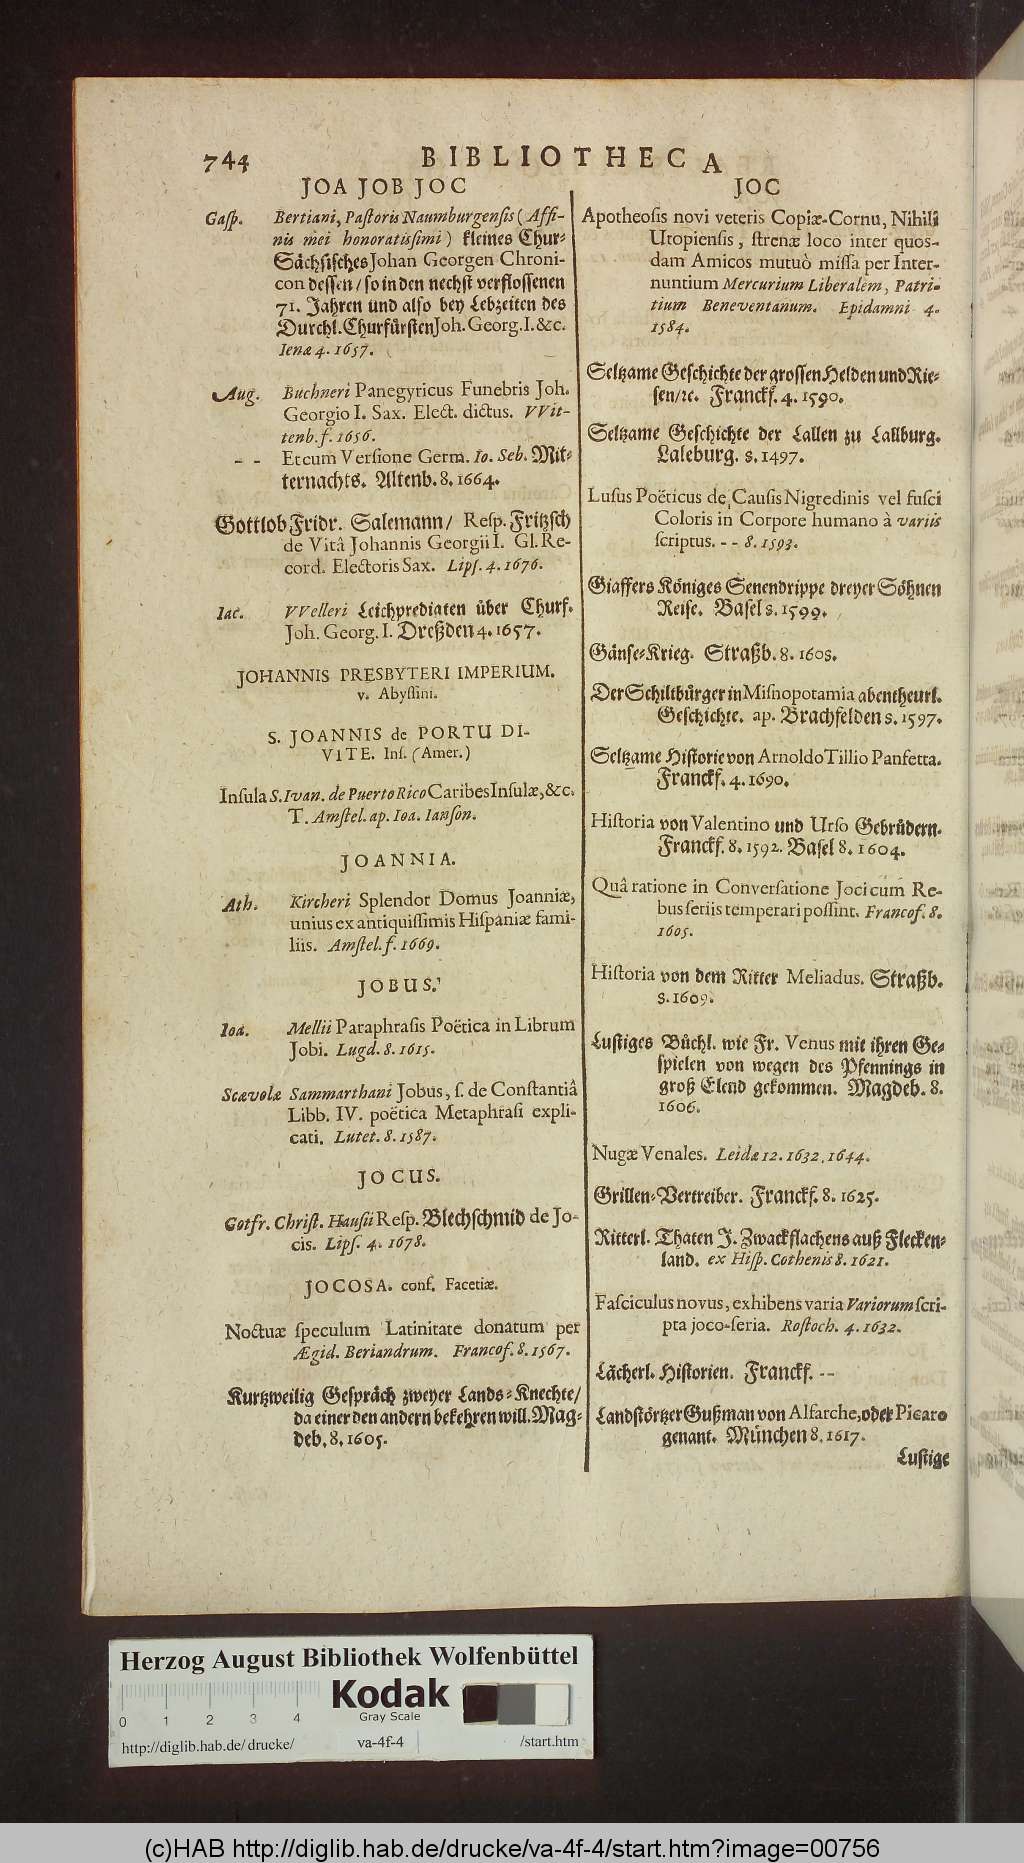 744 BIBLIOTHECA
JOA JOB JOC
Gasp. Bertiani, Pastoris Naumburgensis (Affi-
nis mei honoratissimi) kleines Chur-
Sächsisches Johan Georgen Chroni-
con dessen / so in den nechst verflossenen
71. Jahren und also bey Lebzeiten des
Durchl. Churfürsten Joh. Georg. I. &c.
Ienæ 4. 1657.
Aug. Buchneri Panegyricus Funebris Joh.
Georgio I. Sax. Elect. dictus. VVit-
tenb. f. 1656.
- - Et cum Versione Germ. Io. Seb. Mit-
ternachts. Altenb. 8. 1664.
Gottlob Fridr. Salemann / Resp. Fritzsch
de Vitâ Johannis Georgii I. Gl. Re-
cord. Electoris Sax. Lips. 4. 1676.
Iac. VVelleri Leichpredigten über Churf.
Joh. Georg. I. Dreßden 4. 1657.
JOHANNIS PRESBYTERI IMPERIUM.
v. Abyssini.
S. JOANNIS de PORTU DI-
VITE. Ins. (Amer.)
Insula S. Ivan. de Puerto Rico Caribes Insulæ, &c.
T. Amstel. ap. Ioa. Ianson.
JOANNIA.
Ath. Kircheri Splendor Domus Joanniæ,
unius ex antiquissimis Hispaniæ fami-
liis. Amstel. f. 1669.
JOBUS.
Ioa. Mellii Paraphrasis Poëtica in Librum
Jobi. Lugd. 8. 1615.
Scævolæ Sammarthani Jobus, s. de Constantiâ
Libb. IV. poëtica Metaphrasi expli-
cati. Lutet. 8. 1587.
JOCUS.
Gotfr. Christ. Hausii Resp. Blechschmid de Jo-
cis. Lips. 4. 1678.
JOCOSA. conf. Facetiæ.
Noctuæ speculum Latinitate donatum per
Ægid. Beriandrum. Francof. 8. 1567.
Kurtzweilig Gespräch zweyer Lands-Knechte /
da einer den andern bekehren will. Mag-
deb. 8. 1605.
JOC
Apotheosis novi veteris Copiæ-Cornu, Nihili
Utopiensis, strenæ loco inter quos-
dam Amicos mutuò missa per Inter-
nuntium Mercurium Liberalem, Patri-
tium Beneventanum. Epidamni 4.
1584.
Seltzame Geschichte der grossen Helden und Rie-
sen / ꝛc. Franckf. 4. 1590.
Seltzame Geschichte der Lallen zu Lallburg.
Laleburg. 8. 1497.
Lusus Poëticus de Causis Nigredinis vel fusci
Coloris in Corpore humano à variis
scriptus. - - 8. 1593.
Giaffers Königes Senendrippe dreyer Söhnen
Reise. Basel 8. 1599.
Gänse-Krieg. Straßb. 8. 1608.
Der Schiltbürger in Misnopotamia abentheurl.
Geschichte. ap. Brachfelden 8. 1597.
Seltzame Historie von Arnoldo Tillio Panfetta.
Franckf. 4. 1690.
Historia von Valentino und Urso Gebrüdern.
Franckf. 8. 1592. Basel 8. 1604.
Quâ ratione in Conversatione Joci cum Re-
bus seriis temperari possint. Francof. 8.
1605.
Historia von dem Ritter Meliadus. Straßb.
8. 1609.
Lustiges Büchl. wie Fr. Venus mit ihren Ge-
spielen von wegen des Pfennings in
groß Elend gekommen. Magdeb. 8.
1606.
Nugæ Venales. Leidæ 12. 1632. 1644.
Grillen-Vertreiber. Franckf. 8. 1625.
Ritterl. Thaten J. Zwackflachens auß Flecken-
land. ex Hisp. Cothenis 8. 1621.
Fasciculus novus, exhibens varia Variorum scri-
pta joco-seria. Rostoch. 4. 1632.
Lächerl. Historien. Franckf. - -
Landstörtzer Gußman von Alfarche, oder Picaro
genant. München 8. 1617.
Lustige
Herzog August Bibliothek Wolfenbüttel
Kodak
Gray Scale
0 1 2 3 4
http://diglib.hab.de/drucke/ va-4f-4 /start.htm
(c)HAB http://diglib.hab.de/drucke/va-4f-4/start.htm?image=00756